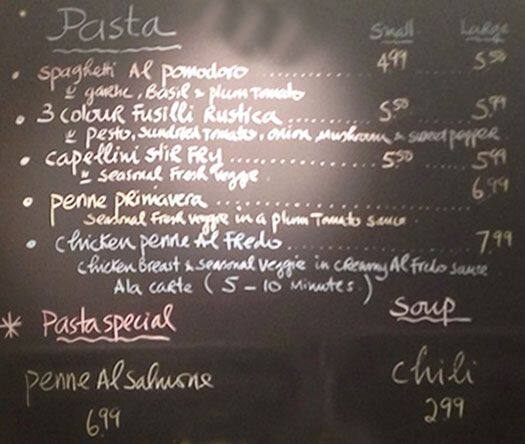 Pasta Small Large
• spaghetti Al pomodoro .......... 4.99 5.50
w garlic, Basil & plum Tomato
• 3 colour Fusilli Rustica .......... 5.50 5.99
w pesto, sundried Tomato, onion, Mushroom & sweet pepper
• capellini stir FRy .......... 5.50 5.99
w seasonal Fresh veggie
• penne primavera .......... 6.99
seasonal Fresh veggie in a plum Tomato sauce
• chicken penne Al Fredo .......... 7.99
chicken Breast & seasonal veggie in creamy Al Fredo sauce
Ala carte (5-10 Minutes)
* Pasta special
penne Al Salmone
6.99
Soup
chili
2.99